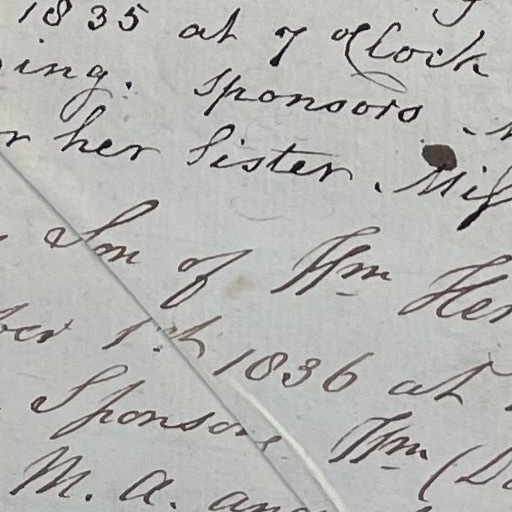 1835 at 7 O'Clock
ing. Sponsors.
r her Sister. Miſ
Son of Wm Her
ber 1st 1836 at
Sponsors Wm (D
M. A. and